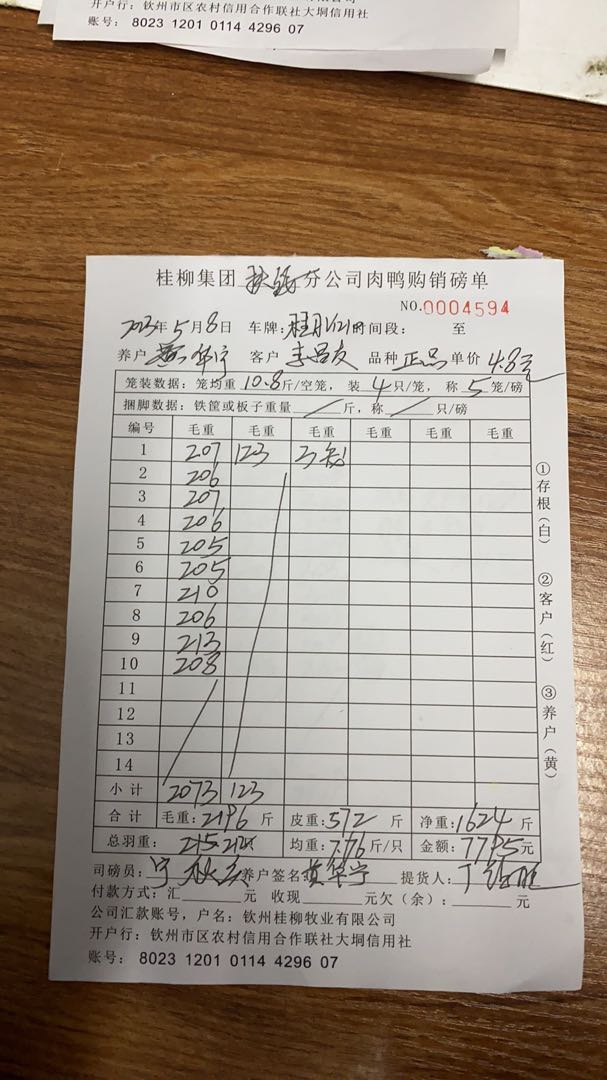 开户行：钦州市区农村信用合作联社大垌信用社
账号： 8023 1201 0114 4296 07
桂柳集团 钦钦 分公司肉鸭购销磅单
NO.0004594
2023年5月8日 车牌： 时间段： 至
养户 黄华宁 客户 品种 正品 单价 4.8元
笼装数据：笼均重 10.8 斤/空笼， 装 4 只/笼， 称 5 笼/磅
捆脚数据：铁筐或板子重量 / 斤，称 / 只/磅
编号 毛重 毛重 毛重 毛重 毛重 毛重
1 207 123
2 206
3 207
4 206
5 205
6 205
7 210
8 206
9 213
10 208
11
12
13
14
小计 2073 123
合计 毛重：2196 斤 皮重：572 斤 净重：1624 斤
总羽重： 均重：7.76 斤/只 金额：7795元
司磅员： 养户签名 黄华宁 提货人：
付款方式：汇 元 收现 元欠（余）： 元
公司汇款账号，户名：钦州桂柳牧业有限公司
开户行：钦州市区农村信用合作联社大垌信用社
账号： 8023 1201 0114 4296 07
①存根（白） ②客户（红） ③养户（黄）